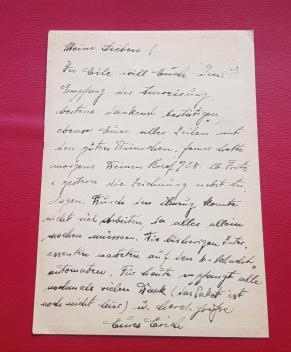 Meine Lieben!
In Eile will Euch den
Empfang der
bestens dankend bestätigen,
ebenso Euer aller Zeilen mit
den guten Wünschen, ferner
morgens Deinen Brief 728.
gestern die Zeichnung nebst
lagen. Durch den konnte
nicht viel arbeiten da alles allein
machen müssen. Die bisherigen
essenten warten auf den
automaten. Für heute empfangt alle
nochmals vielen Dank (das Paket ist
noch nicht hier) u. herzl. Grüsse
Eures